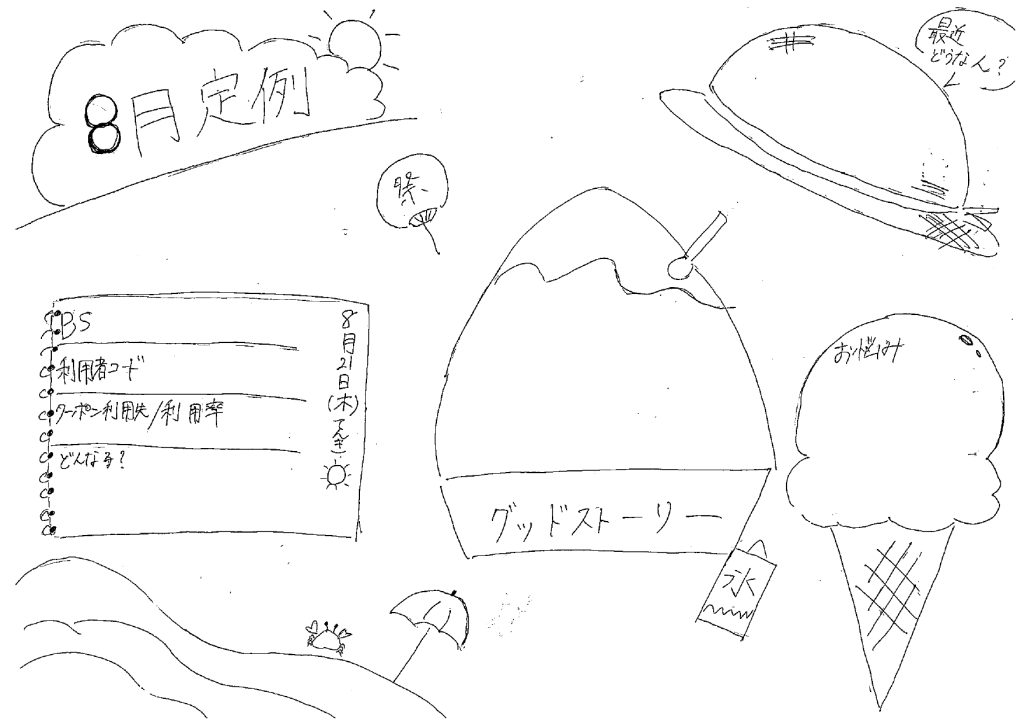 8月定例
祭
最近
どうな人?
BS
利用者コード
クーポン利用先/利用率
どんな子?
8月21日(木)てんき
グッドストーリー
氷
お悩み